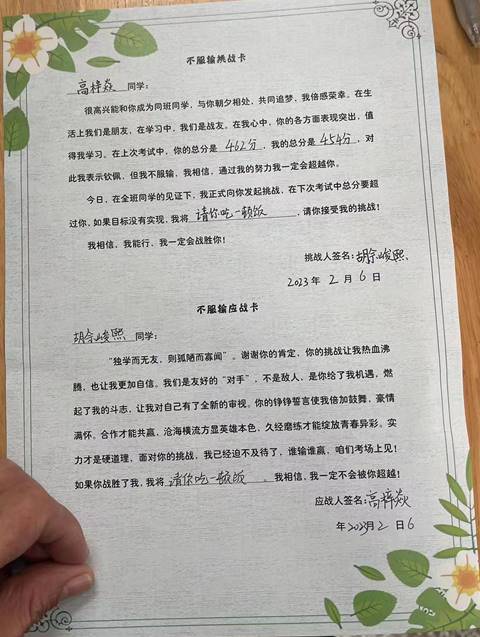 不服输挑战卡
高梓焱 同学：
很高兴能和你成为同班同学，与你朝夕相处，共同追梦，我倍感荣幸。在生
活上我们是朋友，在学习中，我们是战友。在我心中，你的各方面表现突出，值
得我学习。在上次考试中，你的总分是 462分，我的总分是 454分，对
此我表示钦佩，但我不服输，我相信，通过我的努力我一定会超越你。
今日，在全班同学的见证下，我正式向你发起挑战，在下次考试中总分要超
过你，如果目标没有实现，我将 请你吃一顿饭 ，请你接受我的挑战！
我相信，我能行，我一定会战胜你！
挑战人签名：胡宗峻熙
2023 年 2 月 6 日
不服输应战卡
胡宗峻熙 同学：
“独学而无友，则孤陋而寡闻”。谢谢你的肯定，你的挑战让我热血沸
腾，也让我更加自信。我们是友好的“对手”，不是敌人，是你给了我机遇，燃
起了我的斗志，让我对自己有了全新的审视。你的铮铮誓言使我倍加鼓舞，豪情
满怀。合作才能共赢，沧海横流方显英雄本色，久经磨练才能绽放青春异彩。实
力才是硬道理，面对你的挑战，我已经迫不及待了，谁输谁赢，咱们考场上见！
如果你战胜了我，我将 请你吃一顿饭 。我相信，我一定不会被你超越！
应战人签名：高梓焱
年2023月2 日6